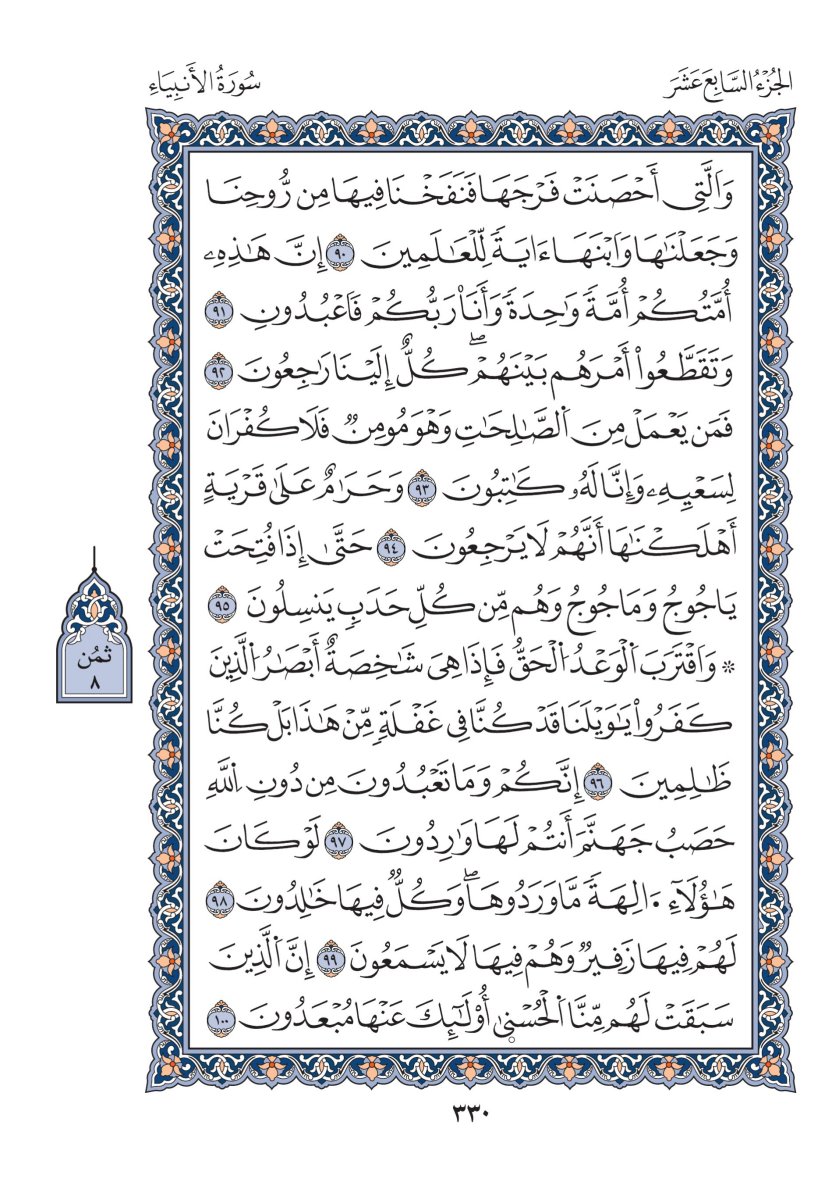 الجُزْءُ السَّابِعَ عَشَرَ
سُورَةُ الأَنبِيَاءِ
وَالَّتِي أَحْصَنَتْ فَرْجَهَا فَنَفَخْنَا فِيهَا مِن رُّوحِنَا
وَجَعَلْنَٰهَا وَابْنَهَا ءَايَةً لِّلْعَٰلَمِينَ ٩٠ إِنَّ هَٰذِهِۦ
أُمَّتُكُمْ أُمَّةً وَٰحِدَةً وَأَنَا۠ رَبُّكُمْ فَاعْبُدُونِ ٩١
وَتَقَطَّعُوا۟ أَمْرَهُم بَيْنَهُمْۖ كُلٌّ إِلَيْنَا رَٰجِعُونَ ٩٢
فَمَن يَعْمَلْ مِنَ الصَّٰلِحَٰتِ وَهْوَ مُومِنٌ فَلَا كُفْرَانَ
لِسَعْيِهِۦ وَإِنَّا لَهُۥ كَٰتِبُونَ ٩٣ وَحَرَٰمٌ عَلَىٰ قَرْيَةٍ
أَهْلَكْنَٰهَا أَنَّهُمْ لَا يَرْجِعُونَ ٩٤ حَتَّىٰ إِذَا فُتِحَتْ
يَاجُوجُ وَمَاجُوجُ وَهُم مِّن كُلِّ حَدَبٍ يَنسِلُونَ ٩٥
۞ وَاقْتَرَبَ الْوَعْدُ الْحَقُّ فَإِذَا هِيَ شَٰخِصَةٌ أَبْصَٰرُ الَّذِينَ
كَفَرُوا۟ يَٰوَيْلَنَا قَدْ كُنَّا فِي غَفْلَةٍ مِّنْ هَٰذَا بَلْ كُنَّا
ثمُن
٨
ظَٰلِمِينَ ٩٦ إِنَّكُمْ وَمَا تَعْبُدُونَ مِن دُونِ اللَّهِ
حَصَبُ جَهَنَّمَ أَنتُمْ لَهَا وَٰرِدُونَ ٩٧ لَوْ كَانَ
هَٰؤُلَاءِ ءَالِهَةً مَّا وَرَدُوهَاۖ وَكُلٌّ فِيهَا خَٰلِدُونَ ٩٨
لَهُمْ فِيهَا زَفِيرٌ وَهُمْ فِيهَا لَا يَسْمَعُونَ ٩٩ إِنَّ الَّذِينَ
سَبَقَتْ لَهُم مِّنَّا الْحُسْنَىٰ أُو۟لَٰٓئِكَ عَنْهَا مُبْعَدُونَ ١٠٠
٣٣٠